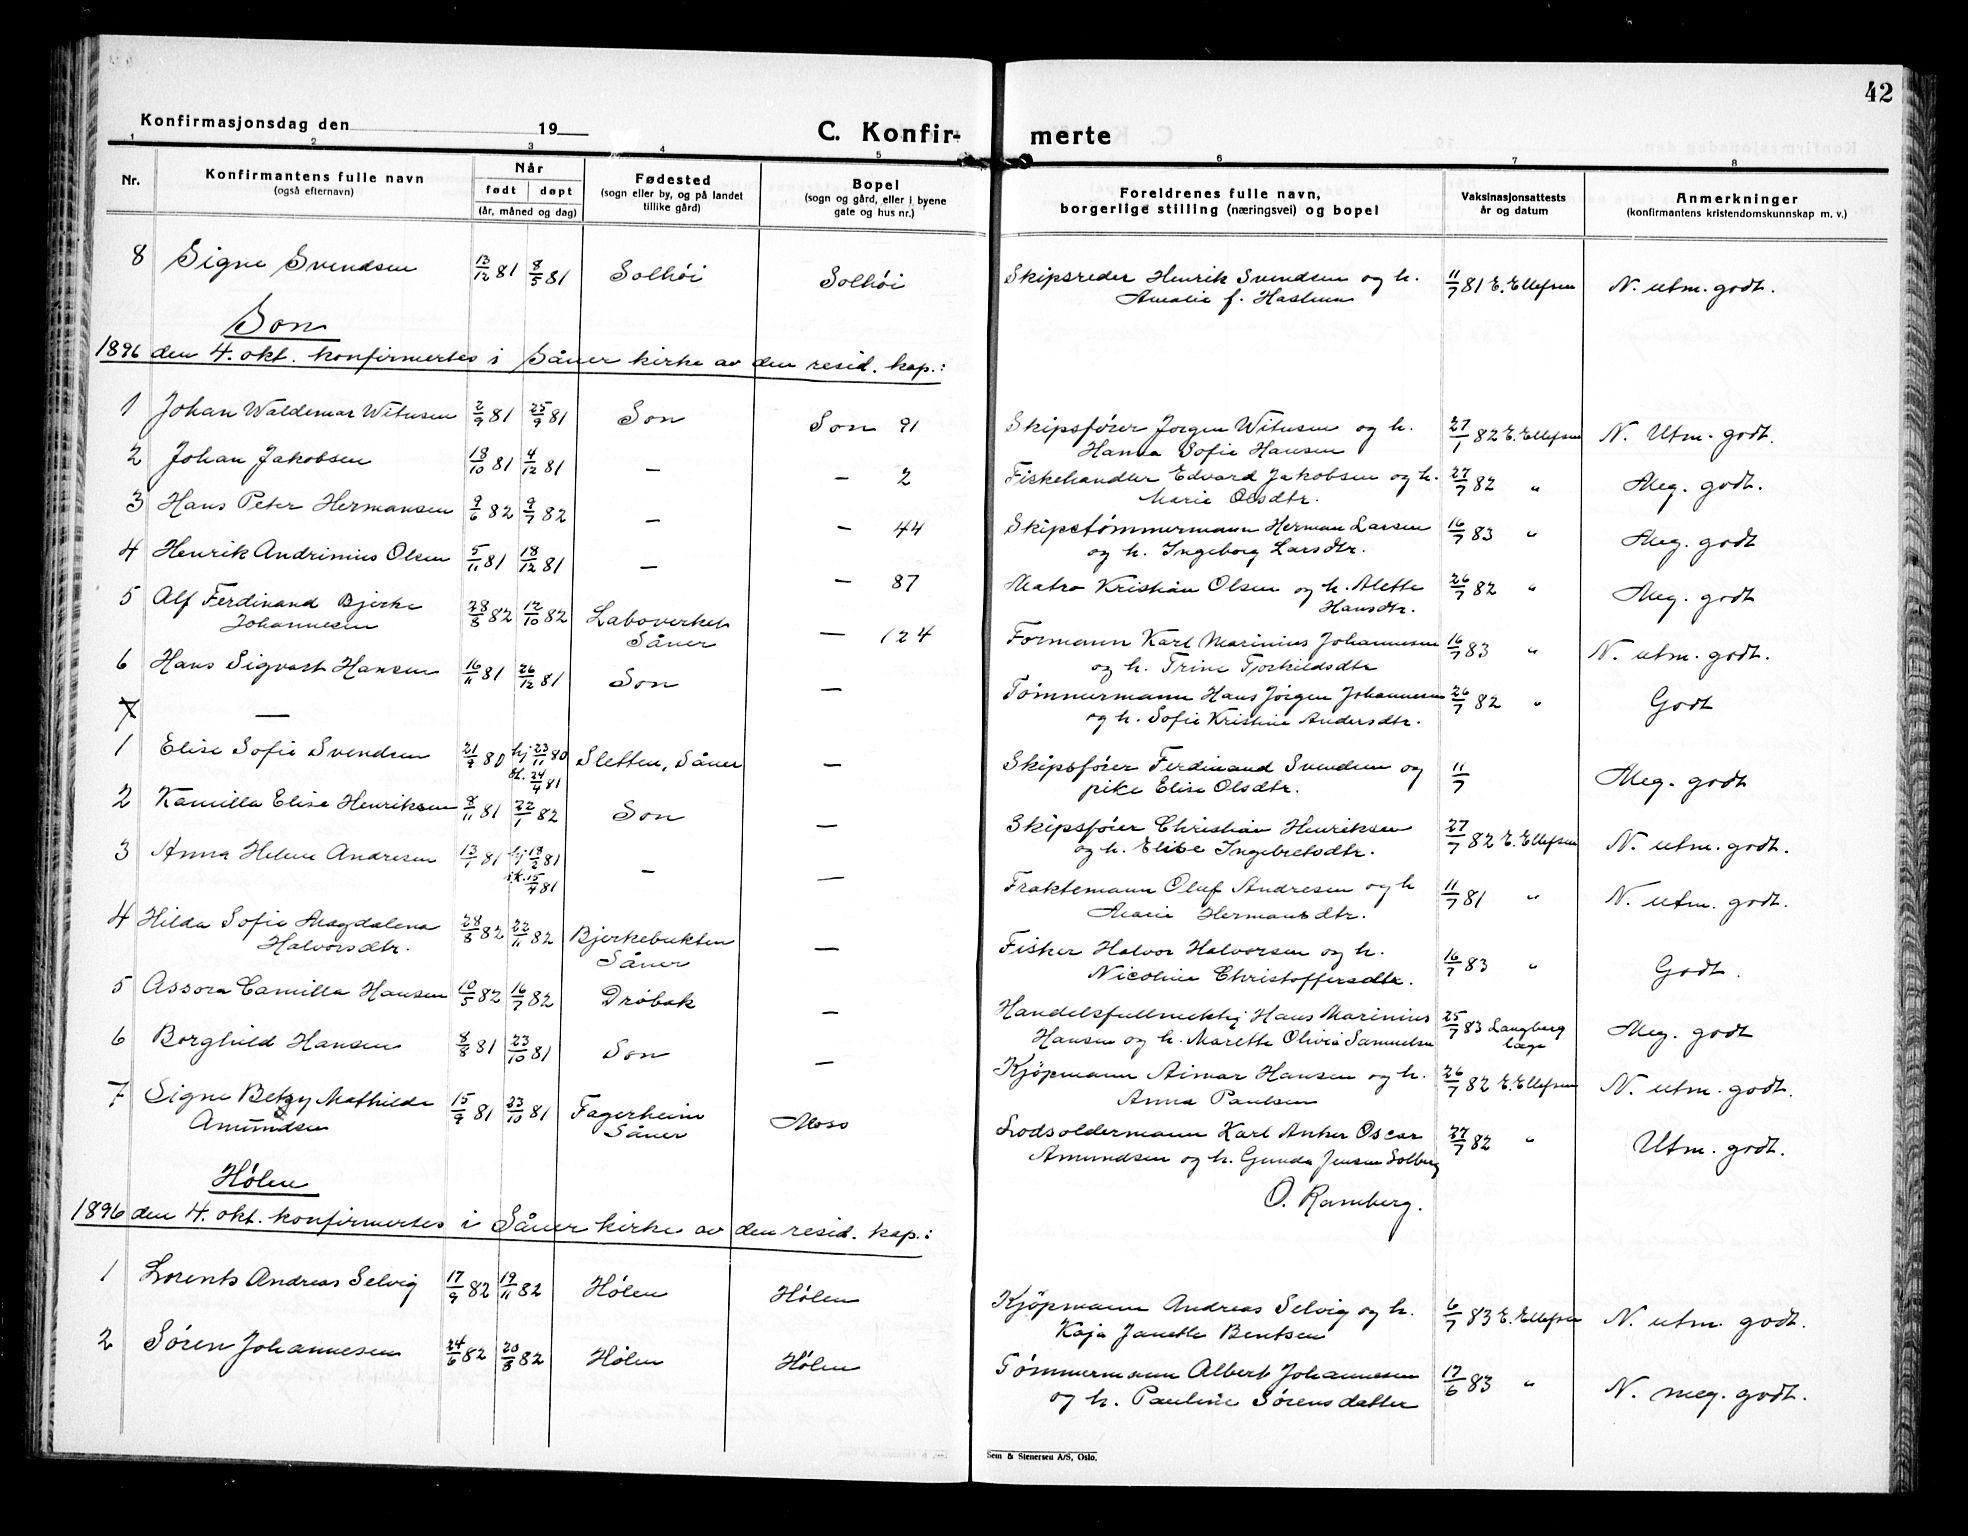 42
Konfirmasjonsdag den 19
C. Konfirmerte
1 2 3 4 5 6 7 8
Nr. Konfirmantens fulle navn (også efternavn) Når født døpt (år, måned og dag) Fødested (sogn eller by, og på landet tillike gård) Bopel (sogn og gård, eller i byene gate og hus nr.) Foreldrenes fulle navn, borgerlige stilling (næringsvei) og bopel Vaksinasjonsattests år og datum Anmerkninger (konfirmantens kristendomskunnskap m. v.)
8 Signe Svendsen 13/12 81 8/5 81 Solhöi Solhöi Skipsreder Henrik Svendsen og h. 11/7 81 E. Ellefsen N. utm. godt.
Amalie f. Haslum
Son
1896 den 4. okt. konfirmertes i Såner kirke av den resid. kap.:
1 Johan Waldemar Witusen 2/9 81 25/9 81 Son Son 91 Skipsfører Jørgen Witusen og h. 27/1 82 E. Ellefsen N. Utm. godt.
Hanna Sofie Hansen
2 Johan Jakobsen 18/10 81 4/12 81 — — 2 Fiskehandler Edvard Jakobsen og h. 27/7 82 " Meg. godt.
Marie Olsdtr.
3 Hans Peter Hermansen 9/6 82 9/7 82 — — 44 Skipstømmermann Herman Larsen 16/7 83 " Meg. godt
og h. Ingeborg Larsdtr.
4 Henrik Andrinius Olsen 5/11 81 18/12 81 — — 87 Matro Kristian Olsen og h. Alette 26/7 82 " Meg. godt
Hansdtr.
5 Alf Ferdinand Bjerke 28/8 82 12/10 82 Laboverket — 124 Formann Karl Marinius Johannesen 16/7 83 " N. utm. godt.
Johannesen Såner og h. Trine Torkildsdtr
6 Hans Sigvart Hansen 16/11 81 26/12 81 Son — Tömmermann Hans Jørgen Johannesen 26/7 82 " Godt
og h. Sofie Kristine Andersdtr.
7 —
1 Elise Sofie Svendsen 21/9 80 hj 23/11 80 Sletten, Såner — Skipsfører Ferdinand Svendsen og 11/7 Meg. godt
24/4 81 pike Elise Olsdtr.
2 Kamilla Elise Henriksen 8/11 81 22/1 82 Son — Skipsfører Christian Henriksen 27/7 82 E. Ellefsen N. utm. godt.
og h. Elise Ingebretsdtr.
3 Anna Helene Andresen 13/1 81 hj 18/2 81 — — Fraktemann Oluf Andresen og h 11/7 81 " N. utm. godt.
i k. 15/4 81 Marie Hermansdtr.
4 Hilda Sofie Magdalena 28/8 82 22/11 82 Bjerkebukten — Fisker Halvor Halvorsen og h. 16/7 83 " Godt.
Halvorsdtr. Såner Nicoline Christoffersdtr.
5 Assora Camilla Hansen 10/5 82 16/7 82 Drøbak — Handelsfullmektig Hans Marinius 25/7 83 Langberg Meg. godt
Hansen og h. Marette Olivia Samuelsen læge
6 Borghild Hansen 8/8 81 23/10 81 Son — Kjöpmann Aimar Hansen og h. 26/7 82 E. Ellefsen N. utm. godt.
Anna Paulsen
7 Signe Betzy Mathilde 15/9 81 23/10 81 Fagerheim Moss Lodsoldermann Karl Anker Oscar 27/7 82 " Utm. godt.
Amundsen Såner Amundsen og h. Gunda Jensen Solberg
O. Ramberg.
Hölen
1896 den 4. okt. konfirmertes i Såner kirke av den resid. kap.:
1 Lorents Andreas Selvig 17/9 82 19/11 82 Hölen Hölen Kjöpmann Andreas Selvig og h. 6/7 83 E. Ellefsen N. utm. godt.
Kaja Janette Bentsen
2 Søren Johannesen 24/6 82 20/8 82 Hölen Hölen Tömmermann Albert Johannesen 17/6 83 " N. meg. godt.
og h. Pauline Sørensdatter
Sem & Stenersen A/S, Oslo.